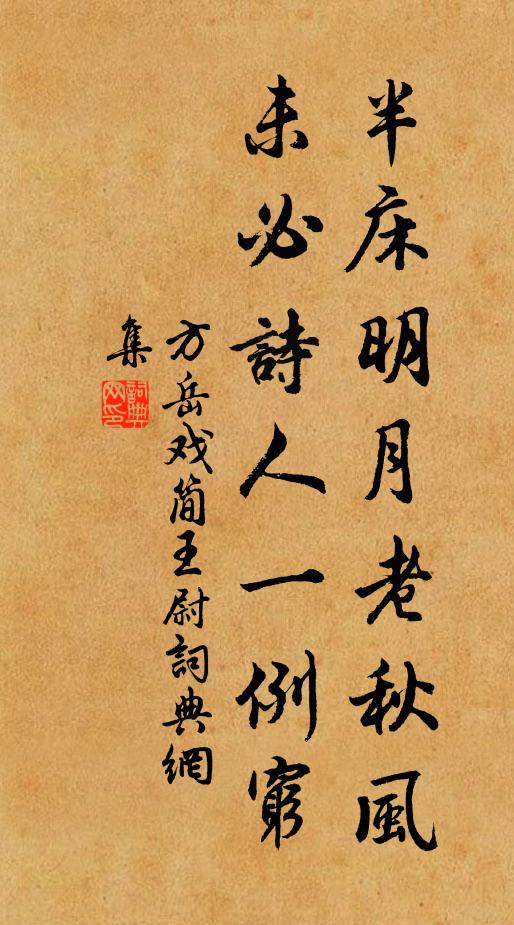 半床明月老秋風
未必詩人一例窮
方岳戏简王尉詞典網
集
詞典网印